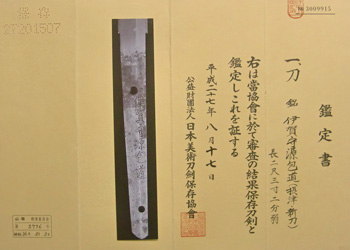 鑑定書
一、刀 銘 伊賀守源包道(摂津新刀)
長二尺三寸二分弱
右は當協會に於て審査の結果保存刀剣と
鑑定しこれを証する
平成二十七年八月十七日
公益財団法人日本美術刀剣保存協會
№ 3009915
鑑存
27201507